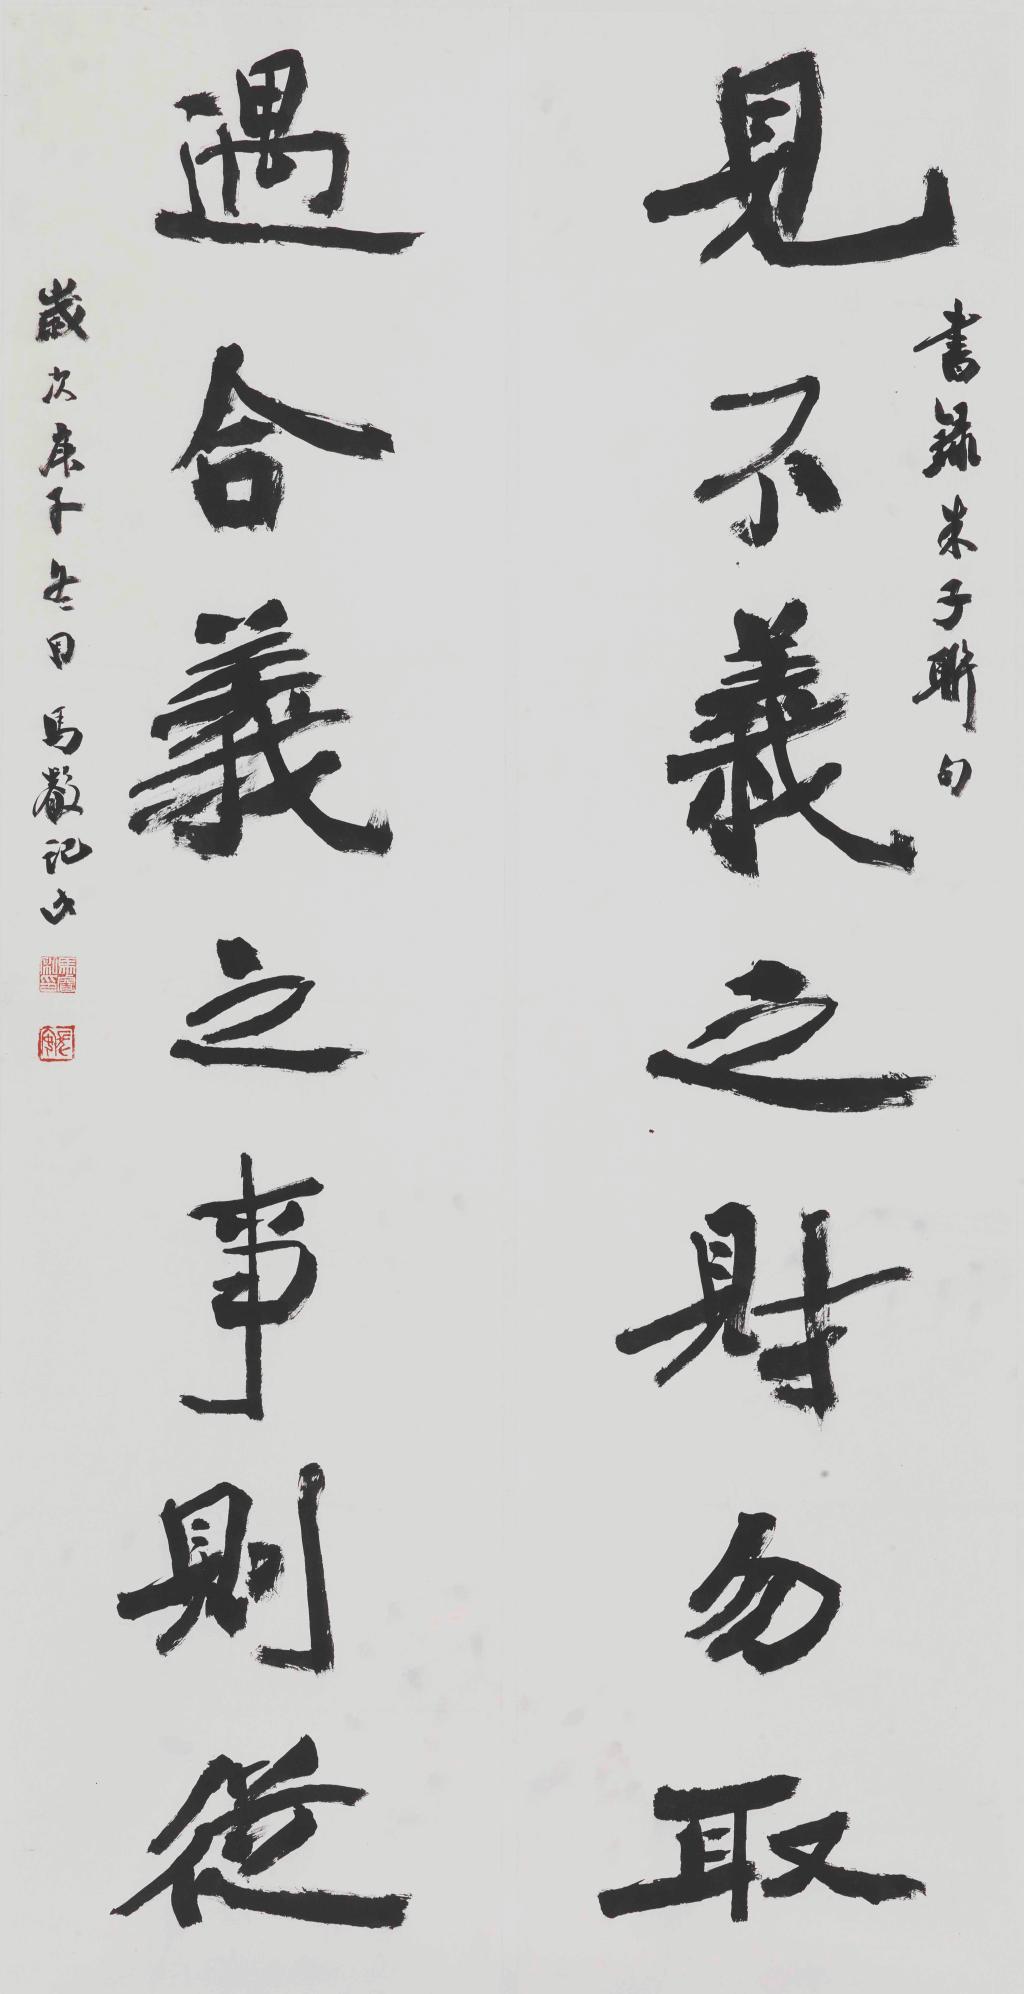 見不義之財勿取
書錄朱子聯句
遇合義之事則從
歲次庚子冬日馬嚴記